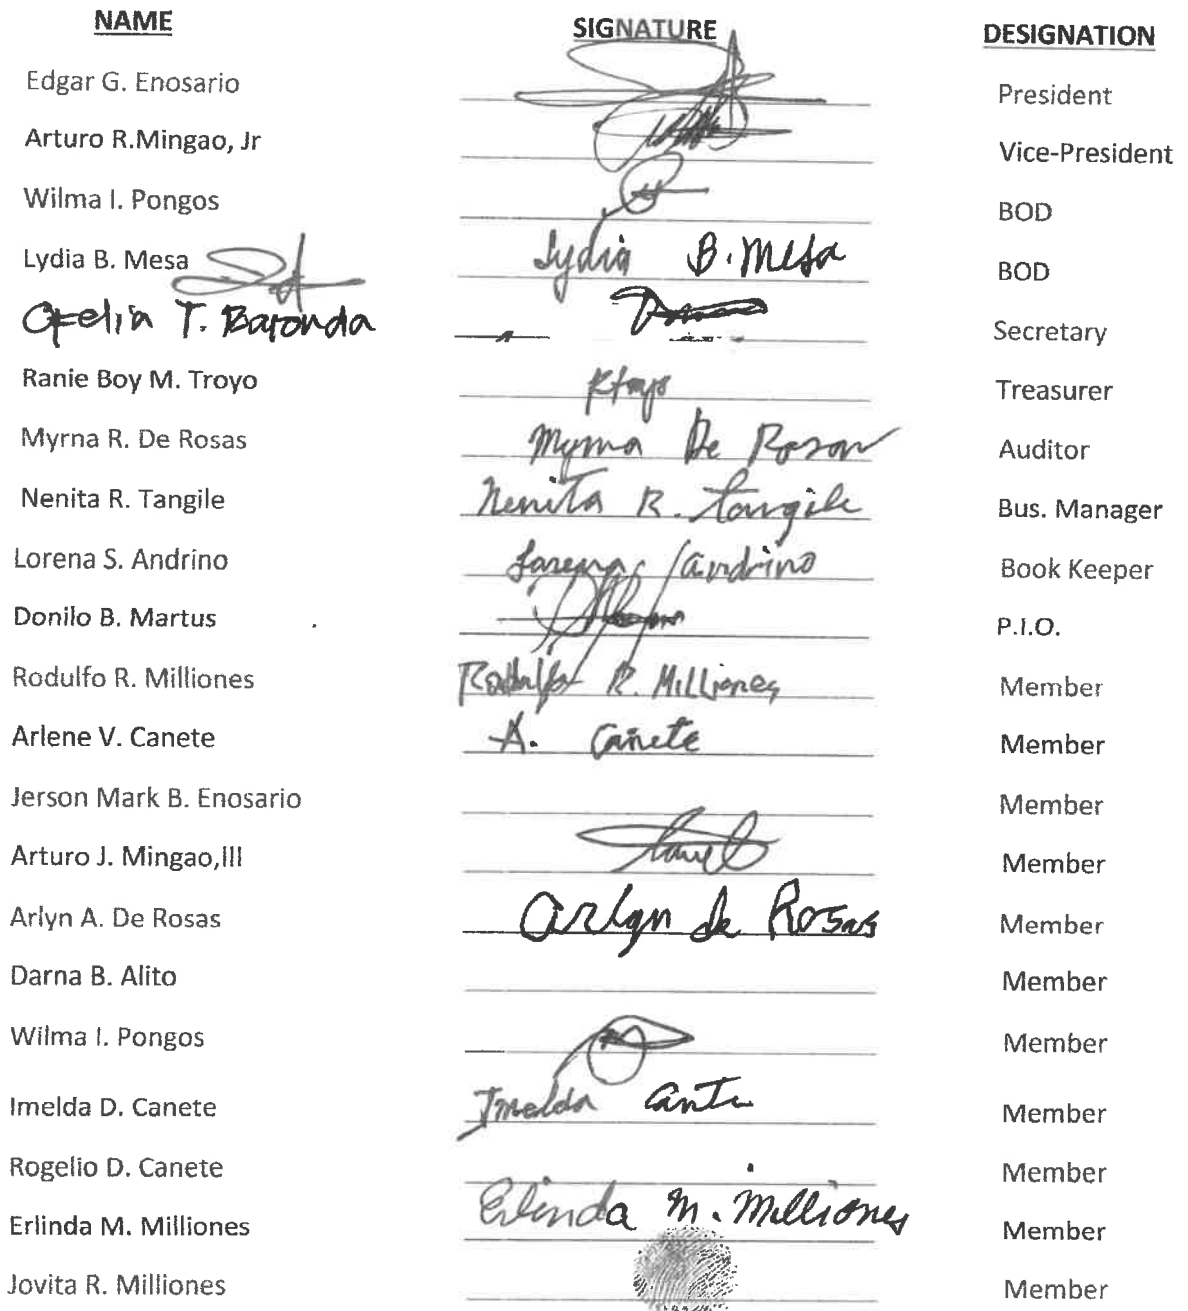 NAME SIGNATURE DESIGNATION
Edgar G. Enosario President
Arturo R.Mingao, Jr Vice-President
Wilma I. Pongos BOD
Lydia B. Mesa Lydia B. Mesa BOD
Ofelia T. Baronda Secretary
Ranie Boy M. Troyo Treasurer
Myrna R. De Rosas Myrna De Rosas Auditor
Nenita R. Tangile Nenita R. Tangile Bus. Manager
Lorena S. Andrino Lorena S Andrino Book Keeper
Donilo B. Martus P.I.O.
Rodulfo R. Milliones Rodulfo R. Milliones Member
Arlene V. Canete A. Cañete Member
Jerson Mark B. Enosario Member
Arturo J. Mingao,III Member
Arlyn A. De Rosas Arlyn de Rosas Member
Darna B. Alito Member
Wilma I. Pongos Member
Imelda D. Canete Imelda Member
Rogelio D. Canete Member
Erlinda M. Milliones Erlinda M. Milliones Member
Jovita R. Milliones Member